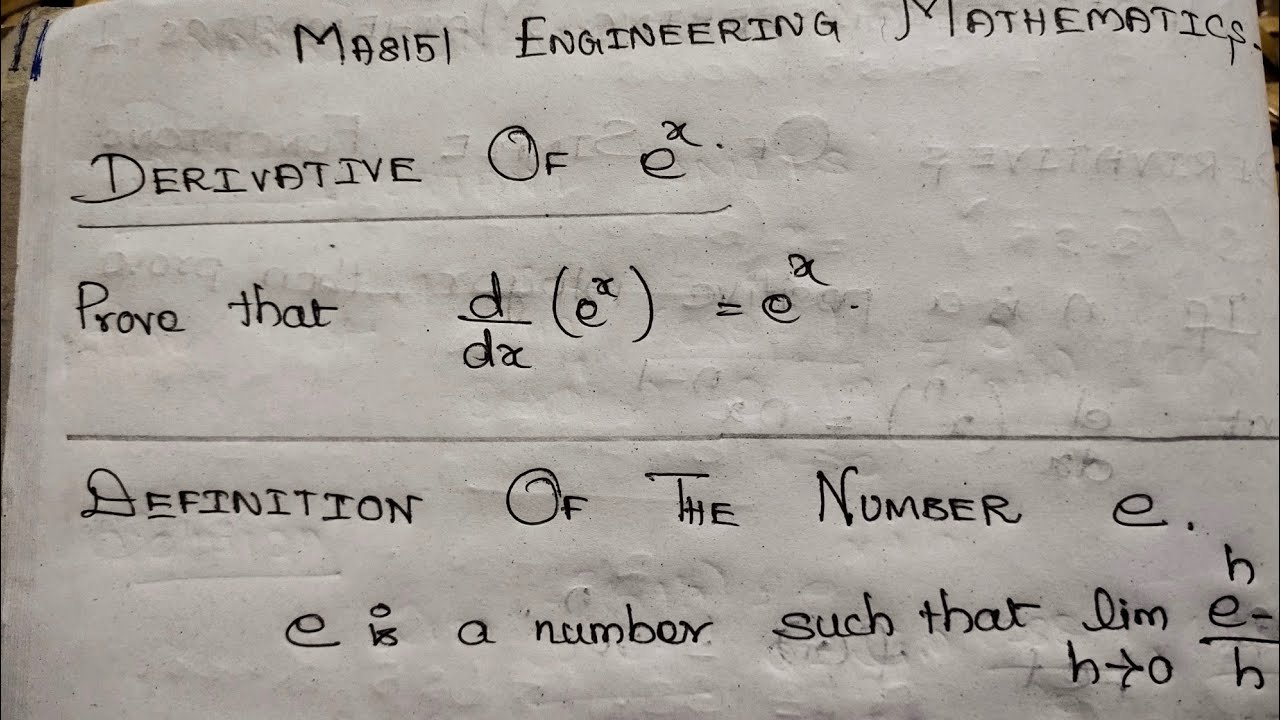 MA8151 ENGINEERING MATHEMATICS.
DERIVATIVE OF e^x.
Prove that d/dx (e^x) = e^x.
DEFINITION OF THE NUMBER e.
e is a number such that lim h→0 e^h - / h